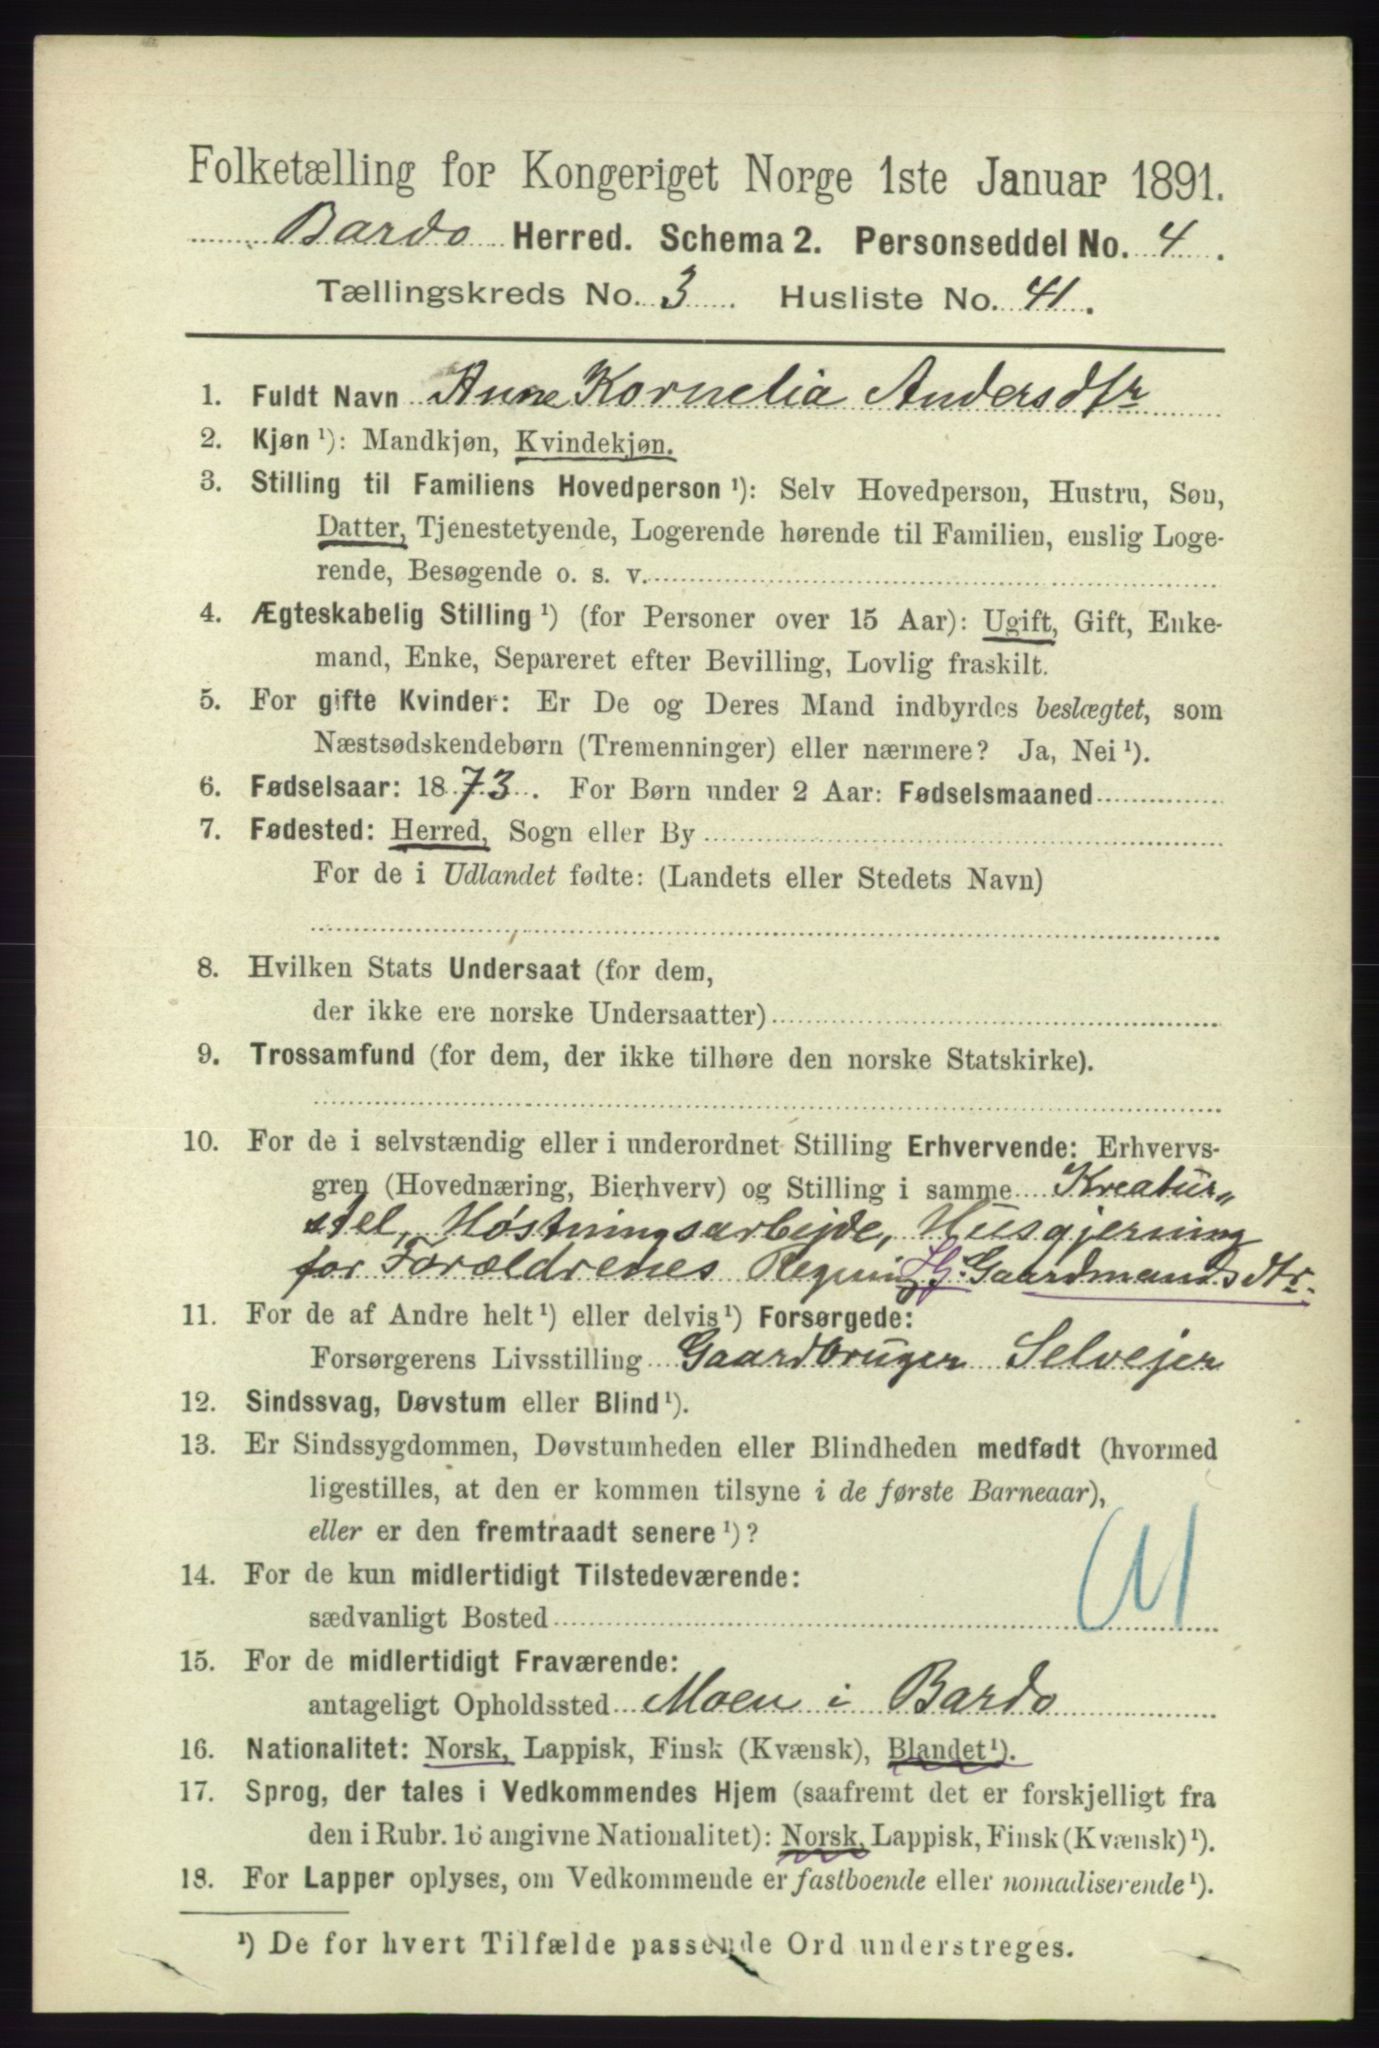 Folketælling for Kongeriget Norge 1ste Januar 1891.
Bardo Herred. Schema 2. Personseddel No. 4.
Tællingskreds No. 3 Husliste No. 41.
1. Fuldt Navn Anne Kornelia Andersdtr
2. Kjøn ¹): Mandkjøn, Kvindekjøn.
3. Stilling til Familiens Hovedperson ¹): Selv Hovedperson, Hustru, Søn,
Datter, Tjenestetyende, Logerende hørende til Familien, enslig Loge-
rende, Besøgende o. s. v.
4. Ægteskabelig Stilling ¹) (for Personer over 15 Aar): Ugift, Gift, Enke-
mand, Enke, Separeret efter Bevilling, Lovlig fraskilt.
5. For gifte Kvinder: Er De og Deres Mand indbyrdes beslægtet, som
Næstsødskendebørn (Tremenninger) eller nærmere? Ja, Nei ¹).
6. Fødselsaar: 1873. For Børn under 2 Aar: Fødselsmaaned
7. Fødested: Herred, Sogn eller By
For de i Udlandet fødte: (Landets eller Stedets Navn)
8. Hvilken Stats Undersaat (for dem,
der ikke ere norske Undersaatter)
9. Trossamfund (for dem, der ikke tilhøre den norske Statskirke).
10. For de i selvstændig eller i underordnet Stilling Erhvervende: Erhvervs-
gren (Hovednæring, Bierhverv) og Stilling i samme Kreatur„
stel, Høstningsarbejde, Husgjerning
for Forældrenes Regning. Gaardmandsdtr.
11. For de af Andre helt ¹) eller delvis ¹) Forsørgede:
Forsørgerens Livsstilling Gaardbruger Selvejer
12. Sindssvag, Døvstum eller Blind ¹).
13. Er Sindssygdommen, Døvstumheden eller Blindheden medfødt (hvormed
ligestilles, at den er kommen tilsyne i de første Barneaar),
eller er den fremtraadt senere ¹)?
14. For de kun midlertidigt Tilstedeværende:
sædvanligt Bosted
15. For de midlertidigt Fraværende:
antageligt Opholdssted Moen i Bardo
16. Nationalitet: Norsk, Lappisk, Finsk (Kvænsk), Blandet ¹).
17. Sprog, der tales i Vedkommendes Hjem (saafremt det er forskjelligt fra
den i Rubr. 16 angivne Nationalitet): Norsk, Lappisk, Finsk (Kvænsk) ¹).
18. For Lapper oplyses, om Vedkommende er fastboende eller nomadiserende ¹).
¹) De for hvert Tilfælde passende Ord understreges.